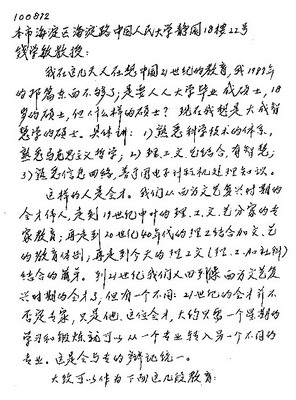 100872
本市海淀区海淀路中国人民大学静园18楼22号
钱学敏教授:
我在这几天人在想中国21世纪的教育,我1989年
的那篇东西不够了;是要人人大学毕业成硕士,18
岁的硕士,但什么样的硕士?现在我想是大成智
慧学的硕士。具体讲:1)熟悉科学技术的体系,
熟悉马克思主义哲学;2)理、工、文、艺结合,有智慧;
3)熟悉信息网络,善于用电子计算机处理知识。
这样的人是全才。我们从西方文艺复兴时期的
全才伟人,走到19世纪中叶的理、工、文、艺分家的专
家教育;再走到20世纪40年代的理工结合加文、艺
的教育体制;再走到今天的理工文(理、工、加社科)
结合的萌芽。到21世纪我们又回到像西方文艺复
兴时期的全才了,但有一个不同:21世纪的全才并不
否定专家,只是他,这位全才,大约只需一个星期的
学习和锻炼就可以从一个专业转入另一个不同的
专业。这是全与专的辩证统一。
大致可以作为下面这几段教育: